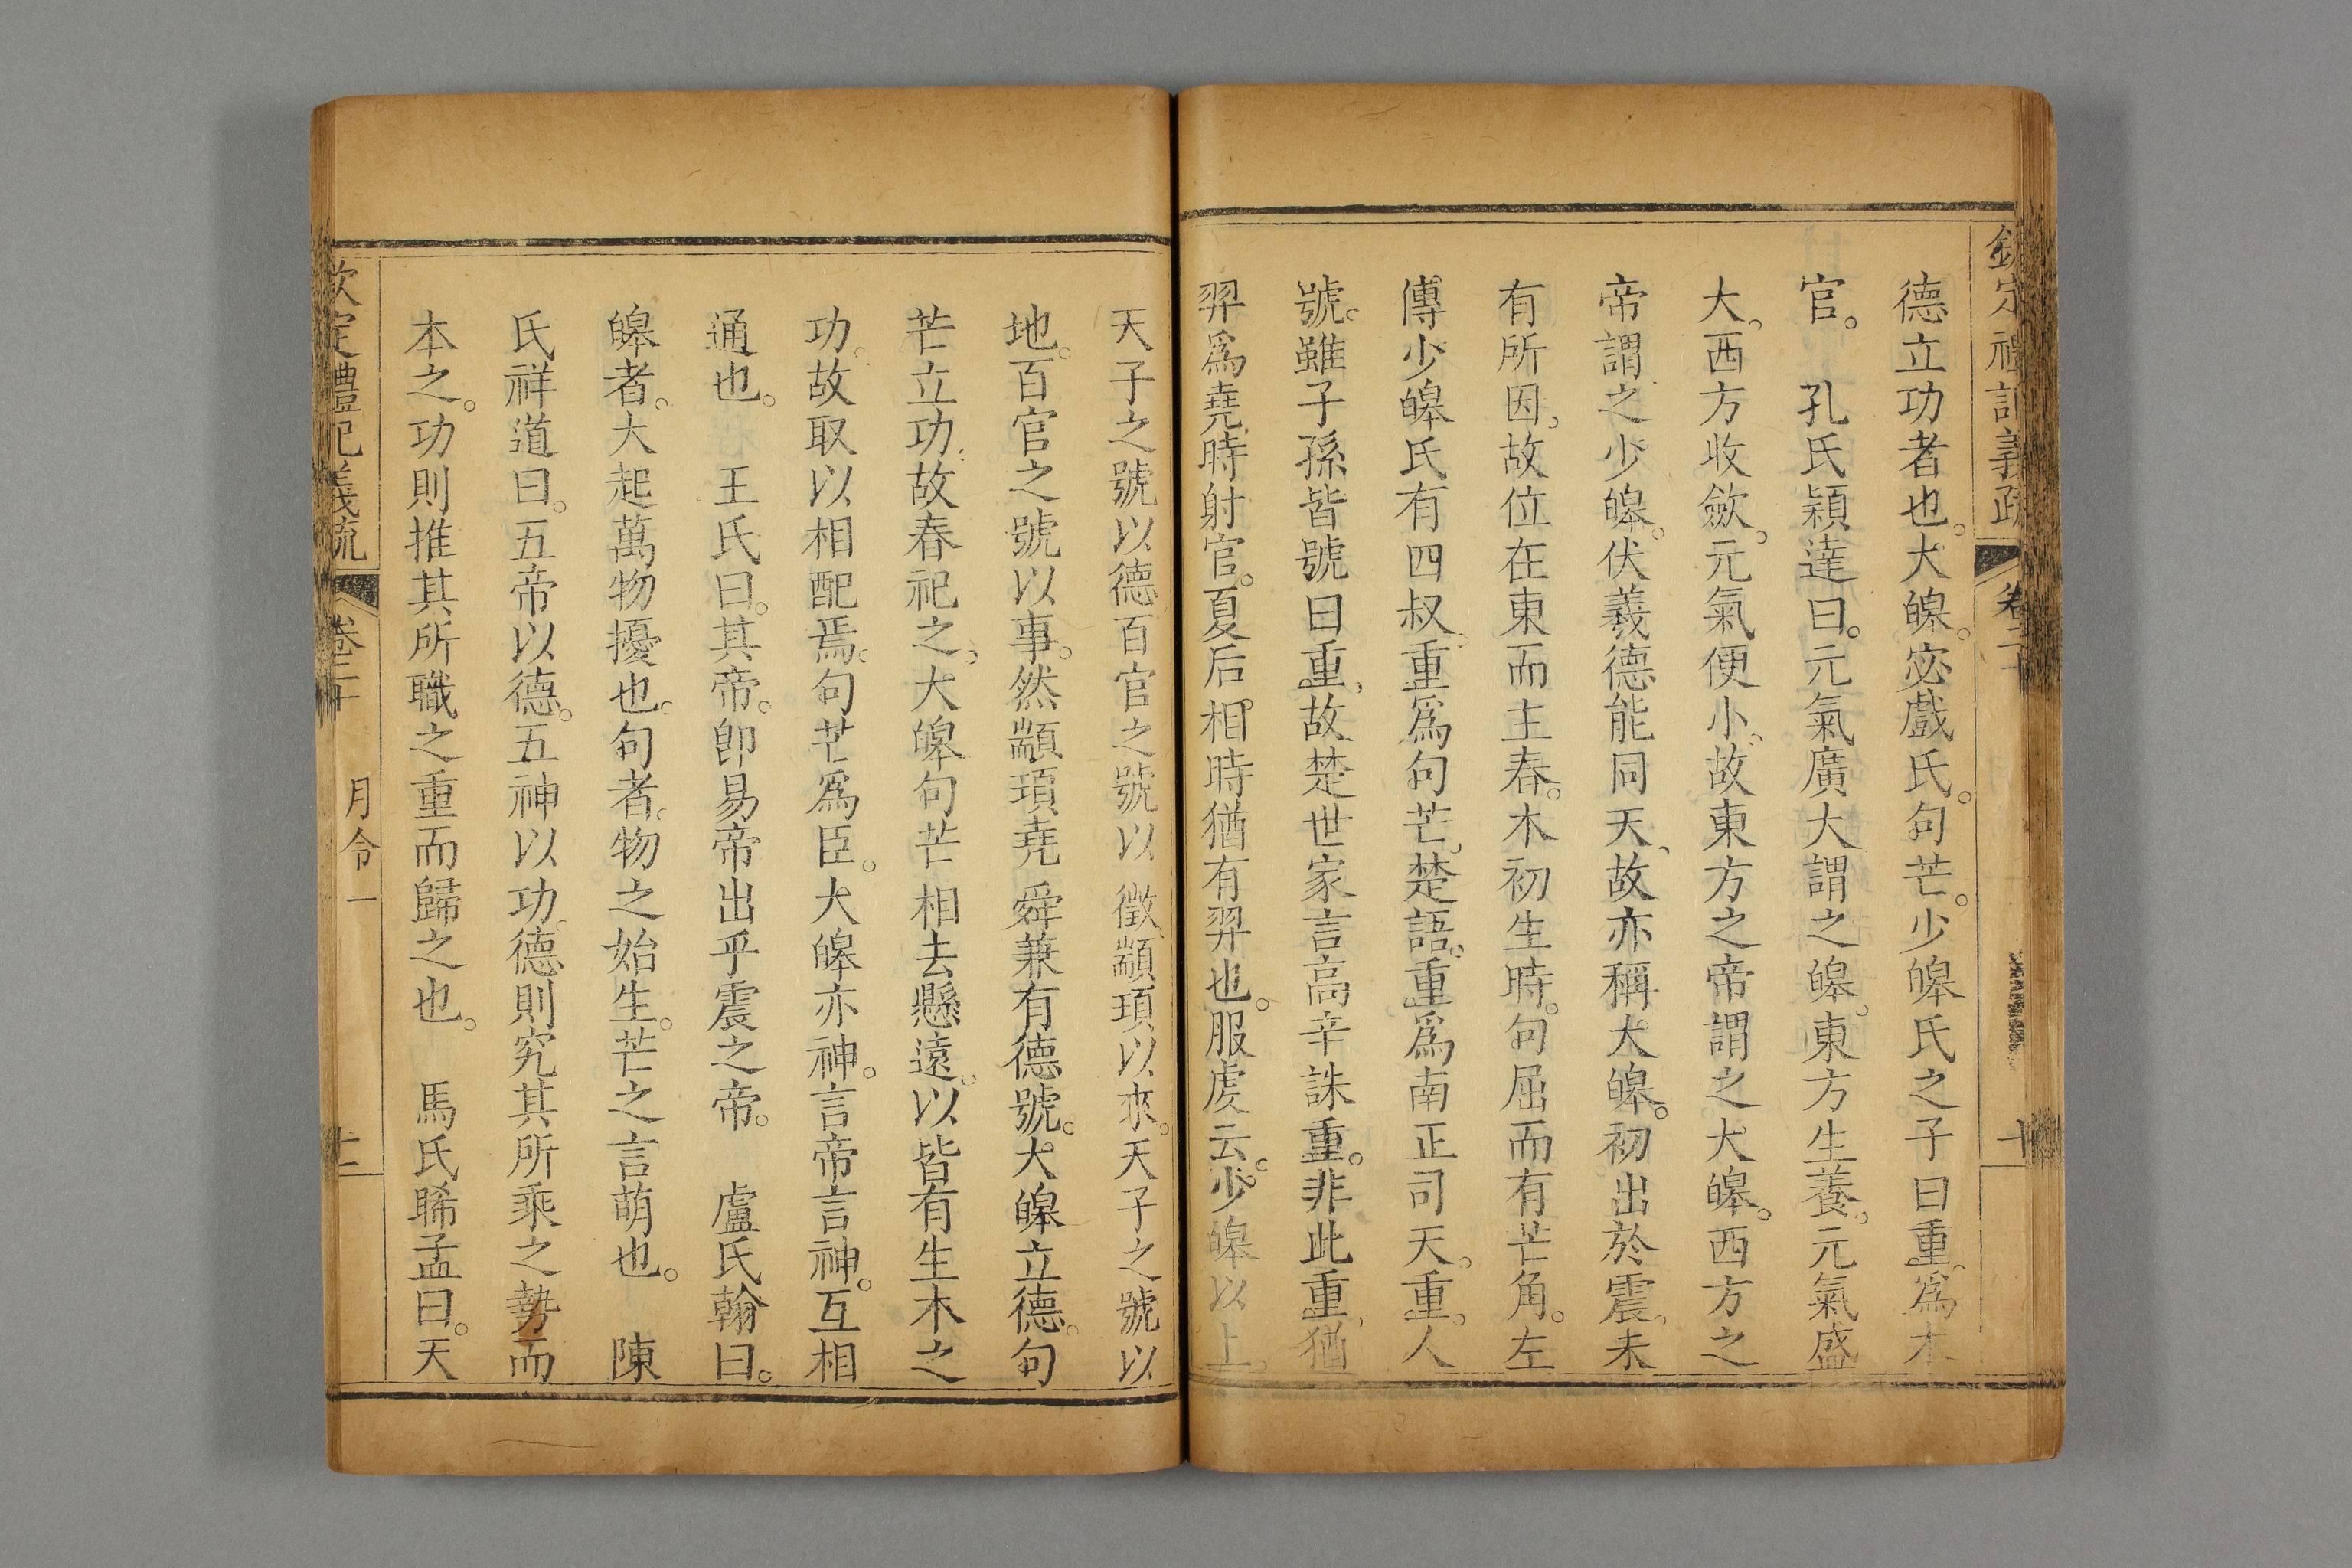 欽定禮記義疏 卷二十 十
德立功者也。大皞。宓戲氏。句芒。少皞氏之子曰重。爲木
官。 孔氏穎達曰。元氣廣大謂之皞。東方生養。元氣盛
大。西方收斂。元氣便小。故東方之帝謂之大皞。西方之
帝謂之少皞。伏羲德能同天。故亦稱大皞。初出於震。未
有所因。故位在東而主春。木初生時。句屈而有芒角。左
傳少皞氏有四叔。重爲句芒。楚語。重爲南正司天。重。人
號。雖子孫皆號曰重。故楚世家言高辛誅重。非此重。猶
羿爲堯時射官。夏后相時猶有羿也。服虔云。少皞以上。
天子之號以德百官之號以徵。顓頊以來。天子之號以
地。百官之號以事。然顓頊堯舜兼有德號。大皞立德。句
芒立功。故春祀之。大皞句芒相去懸遠。以皆有生木之
功。故取以相配焉。句芒爲臣。大皞亦神。言帝言神。互相
通也。 王氏曰。其帝。卽易帝出乎震之帝。 盧氏翰曰。
皞者。大起萬物擾也。句者。物之始生。芒之言萌也。 陳
氏祥道曰。五帝以德。五神以功。德則究其所乘之勢而
本之。功則推其所職之重而歸之也。 馬氏睎孟曰。天
欽定禮記義疏 卷二十 月令一 十一